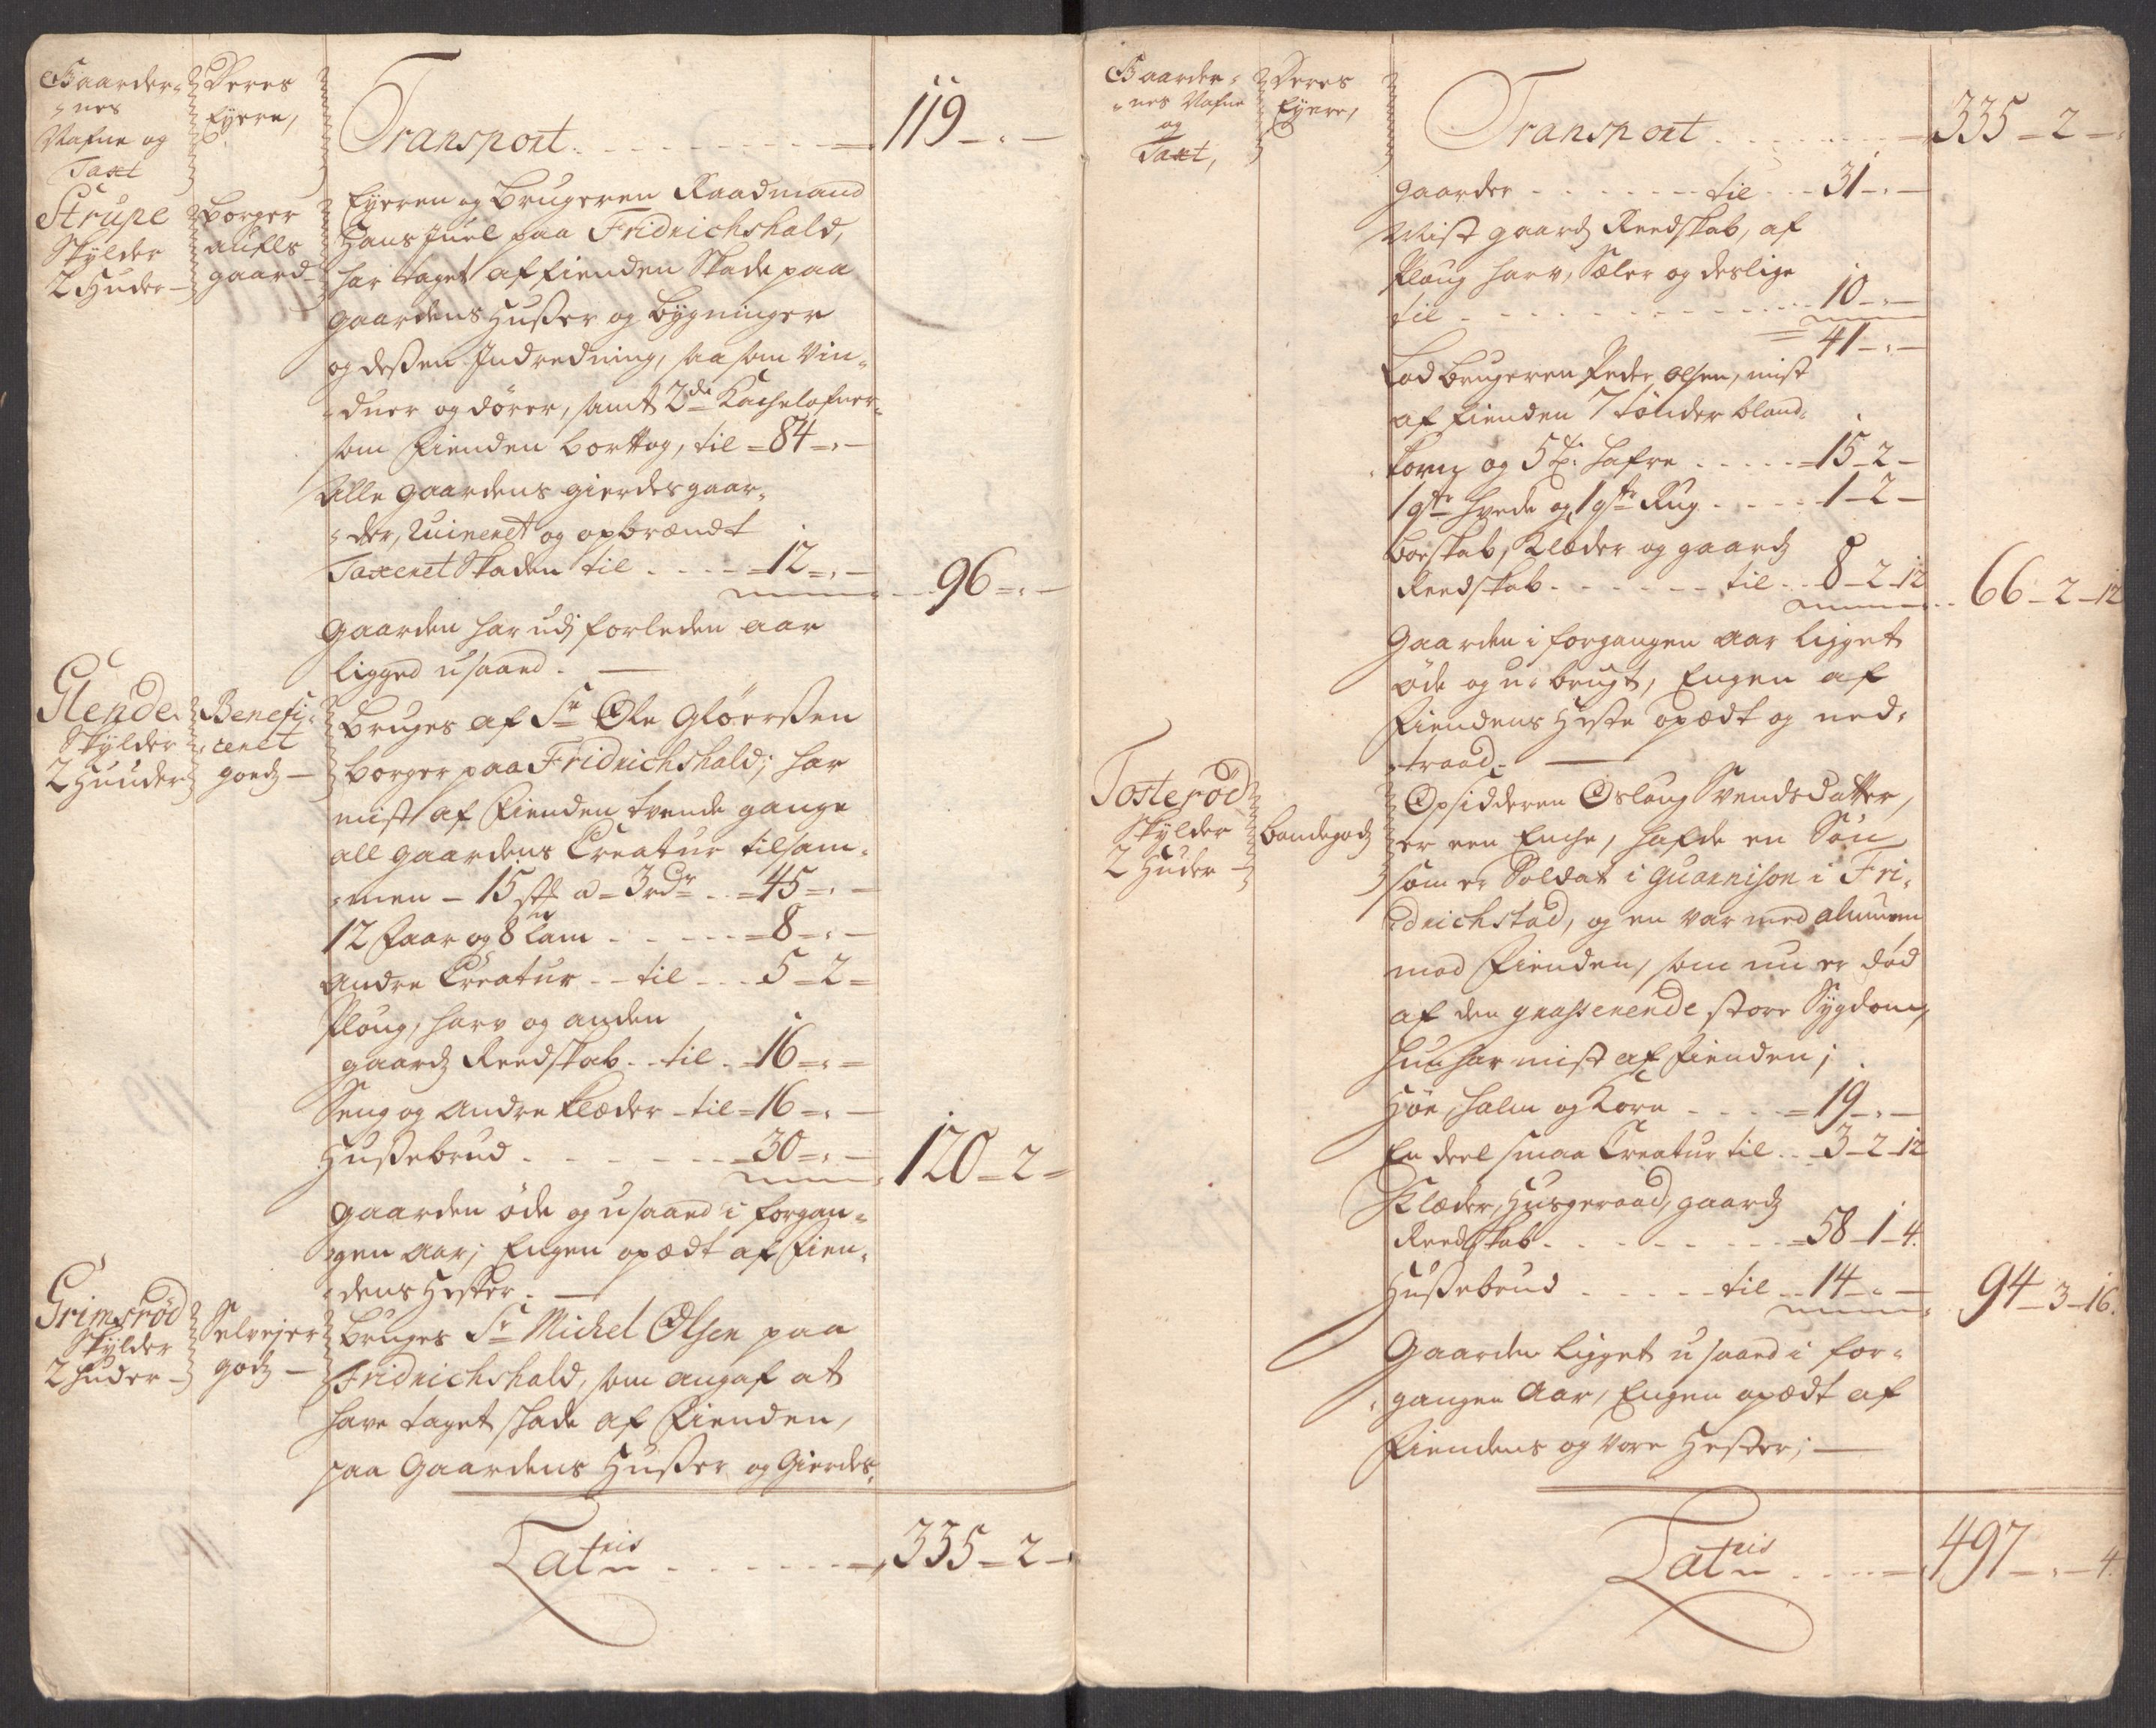 Gaarder-
-nes
Nafne og
Taxt
Deres
Eyere,
Transport . . . . . . . . . = 119 - " -
Strupe
Skÿlder
2 Huder -
Borger
aufls
gaard -
Eÿeren og Brugeren Raadmand
Hans Juel paa Fridrichshald,
har taget af Fienden Skade paa
gaardens Husser og bÿgninger
og dessen Indredning, saa som Vin-
-duer og dörer, samt 2de Kachelofner
som Fienden borttog, til = 84 = " -
Alle gaardens gierdesgaar-
-der, Ruineret og opbrændt
Taxeret Skaden til . . . . = 12 = " -
96 = " -
Gaarden har udj forleden aar
ligged usaaed. —
Glende
Skÿlder
2 Huuder
Benefi-
-ceret
goedz —
Bruges af Sr Ole Glöerssen
borger paa Fridrichshald; har
mist af Fienden tvende gange
all gaardens Creatur tilsam-
-men - 15 st a - 3 rdr . . = 45 = " -
12 Faar og 8 lam . . . . . = 8 = " -
Andre Creatur . . til . . . 5 - 2 =
Ploug, harv og anden
gaardz Reedskab . . til . = 16 = " =
Seng og Andre klæder - til = 16 = " -
Hussebrud . . . . . . . = 30 = " -
120 - 2 =
Gaarden öde og usaaed i forgan-
-gen Aar; Engen opædt af Fien-
-dens Hester. —
Grimsröd
Skÿlder
2 Huder -
Selvejer
godz -
Bruges Sr Michel Olsen paa
Fridrichshald, som angaf at
have taget skade af Fienden,
paa Gaardens Husser og Gierdes-
Latris . . . . . . = 335 - 2 -
Gaarder-
-nes Nafne
og
Taxt,
Deres
Eÿere,
Transport . . . . . . . = 335 - 2 -
gaarder . . . . . . . til . . . 31 - " -
Mist gaardz Reedskab, af
Ploug harv, Sæler og deslige
til . . . . . . . . . . . . . 10 - " -
= 41 - " -
Lod brugeren Peder Olsen, mist
af Fienden 7 tönder bland-
-korn og 5 tr hafre . . . . . = 15 - 2 -
1 qtr hvede og 1 qtr Rug . . . . . 1 - 2 -
Boeskab, Klæder og gaardz
Reedskab . . . . . . . til . . 8 - 2 - 12
66 - 2 - 12
Gaarden i forgangen Aar ligget
öde og u-brugt, Engen af
Fiendens Heste opædt og ned-
-traad. —
Tosteröd
Skÿlder
2 Huder -
bondegodz
Opsidderen Oslaug Svendsdatter,
er een Enche, hafde en Sön
som er Soldat i Guarnison i Fri-
drichstad, og en var med almuen
mod Fienden, som nu er död
af den grasserende store Sÿgdom,
hun har mist af Fienden;
Höe, halm og Korn . . . . = 19 - " -
En deel smaa Creatur til . . 3 - 2 - 12
Klæder, Husgeraad, gaardz
Reedskab . . . . . . . . = 58 - 1 - 4.
Hussebrud . . . . . til . . 14 - " -
94 - 3 - 16.
Gaarden ligget usaaed i for-
-gangen Aar, Engen opædt af
Fiendens og Vore Hester; —
Latris . . . . = 497 - " - 4.